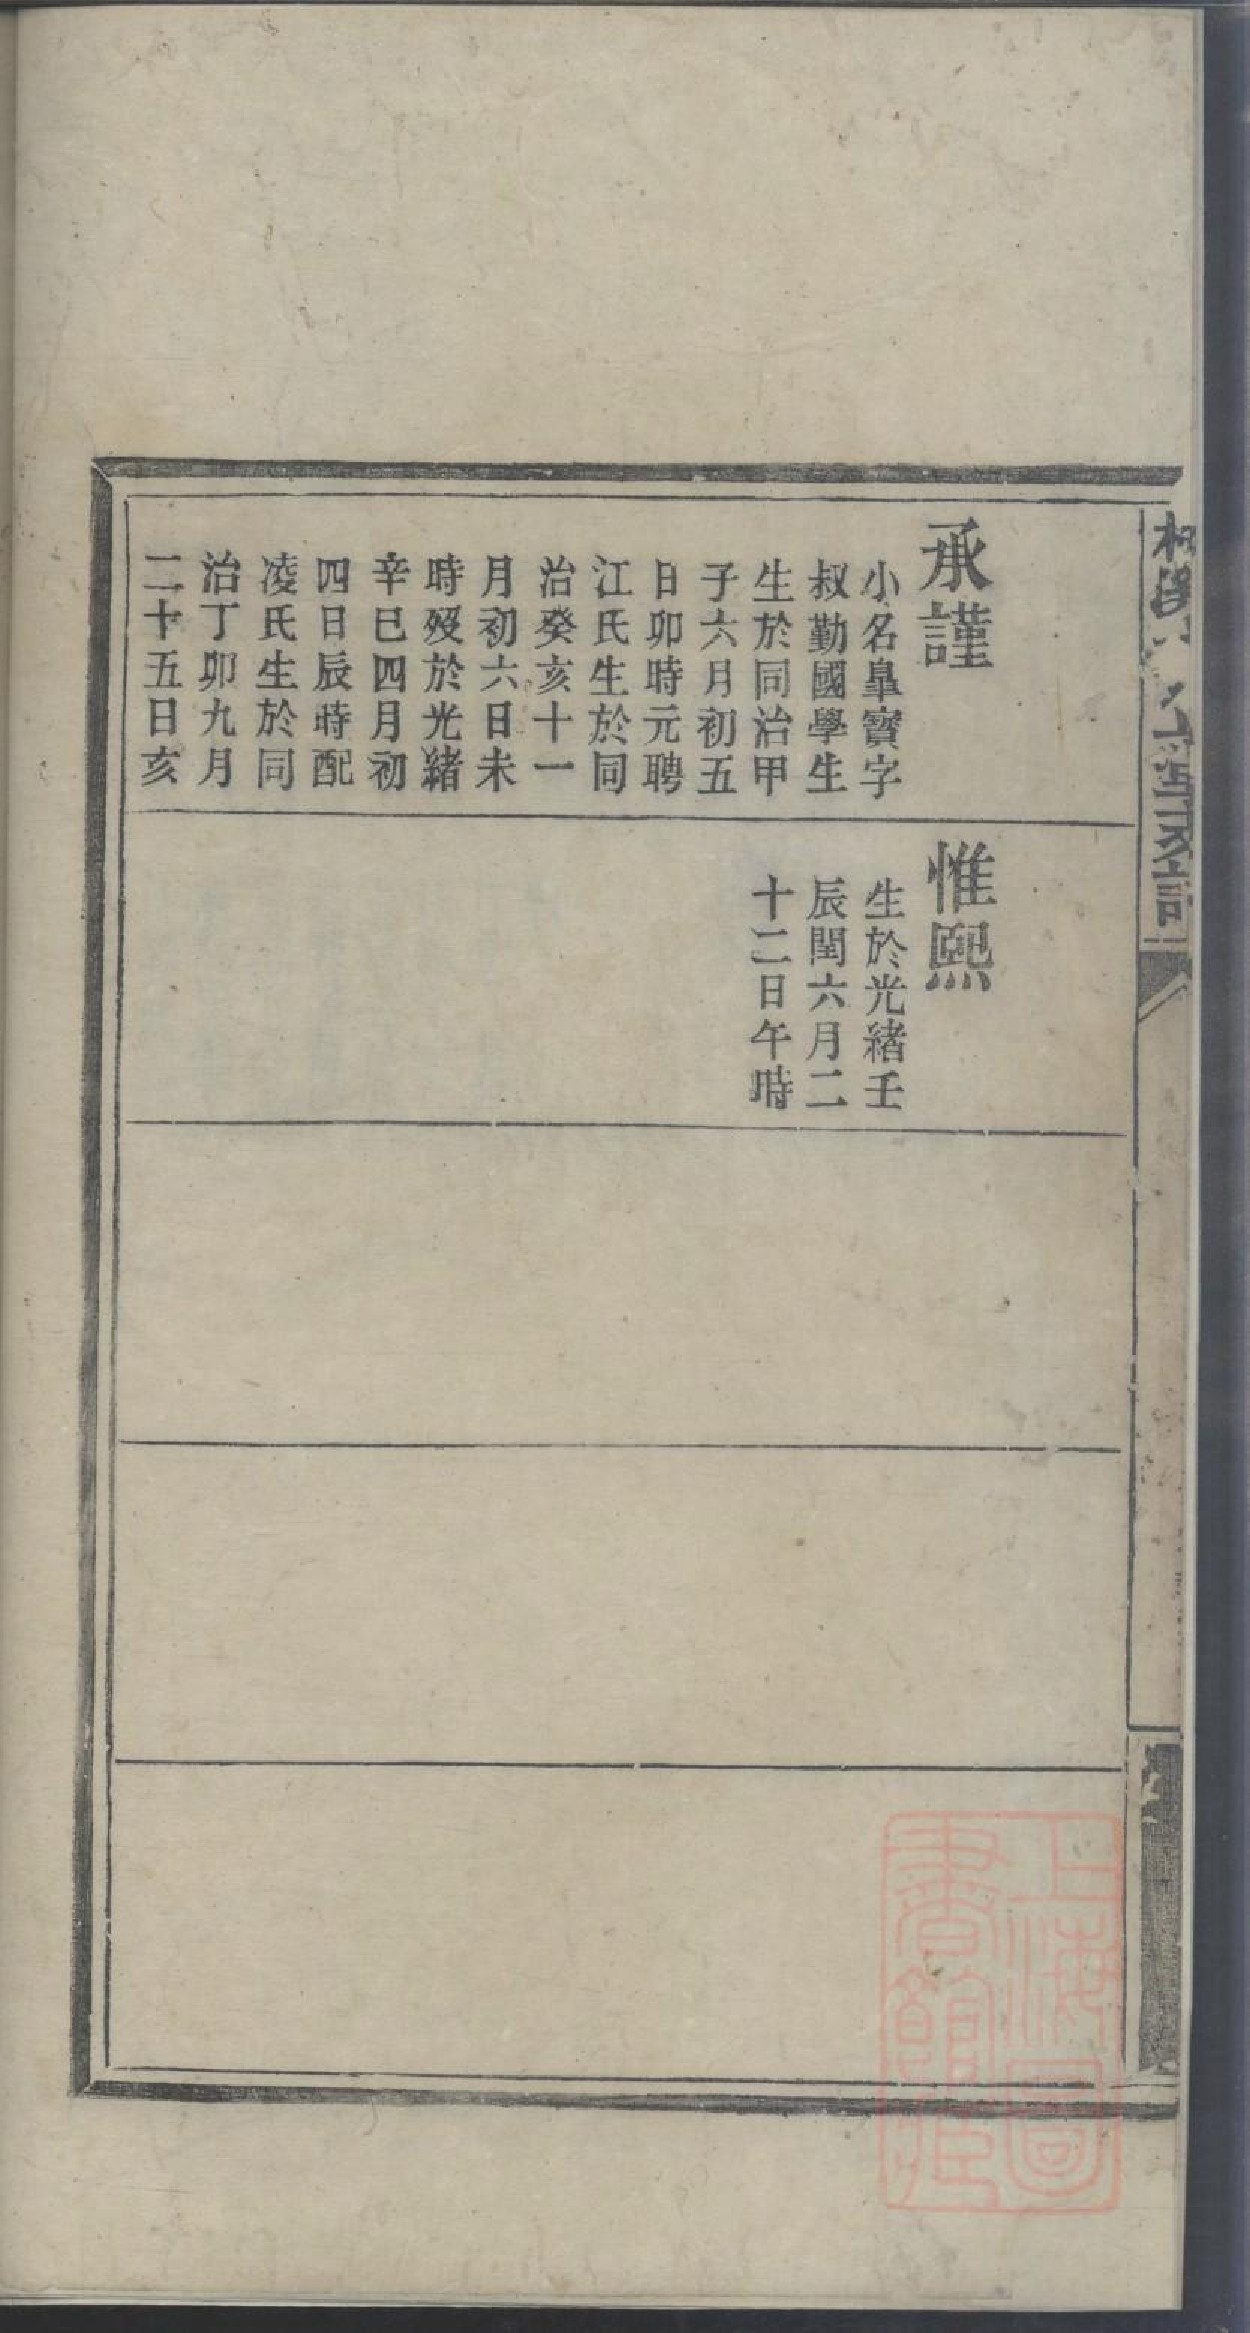 承謹
小名皐寶字
叔勤國學生
生於同治甲
子六月初五
日卯時元聘
江氏生於同
治癸亥十一
月初六日未
時歿於光緒
辛巳四月初
四日辰時配
凌氏生於同
治丁卯九月
二十五日亥
惟熙
生於光緒壬
辰閏六月二
十二日午時
上海圖
書館藏